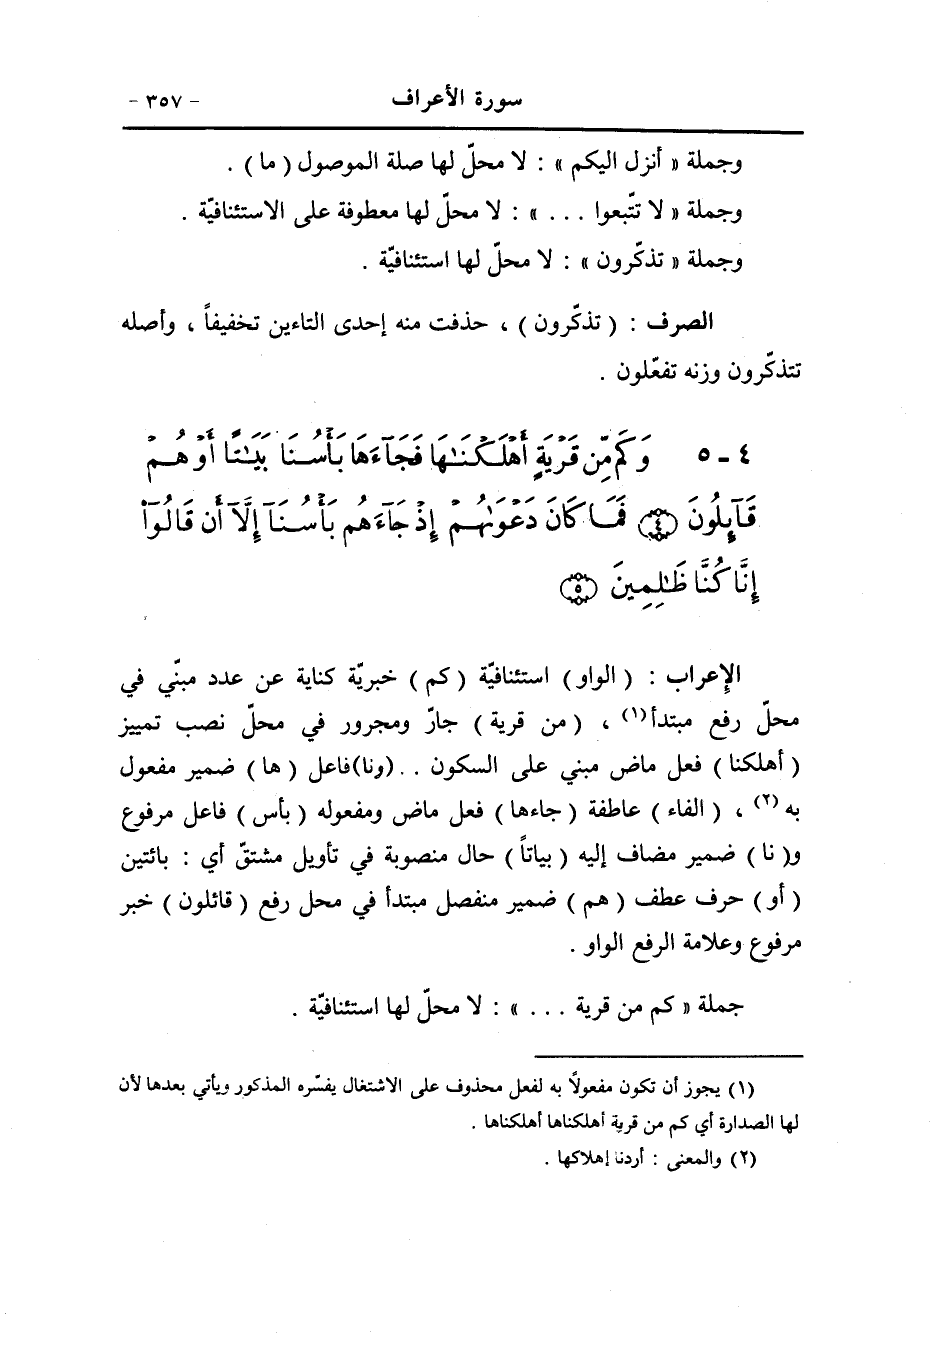 سورة الأعراف - ٣٥٧ -
وجملة « أنزل اليكم » : لا محلّ لها صلة الموصول ( ما ) .
وجملة « لا تتّبعوا . . . » : لا محلّ لها معطوفة على الاستئنافيّة .
وجملة « تذكّرون » : لا محلّ لها استئنافيّة .
الصرف : ( تذكّرون ) ، حذفت منه إحدى التاءين تخفيفاً ، وأصله
تتذكّرون وزنه تفعّلون .
٤ - ٥ وَكَم مِّن قَرْيَةٍ أَهْلَكْنَٰهَا فَجَآءَهَا بَأْسُنَا بَيَٰتًا أَوْ هُمْ
قَآئِلُونَ ﴿٤﴾ فَمَا كَانَ دَعْوَىٰهُمْ إِذْ جَآءَهُم بَأْسُنَآ إِلَّآ أَن قَالُوٓا۟
إِنَّا كُنَّا ظَٰلِمِينَ ﴿٥﴾
الإعراب : ( الواو ) استئنافيّة ( كم ) خبريّة كناية عن عدد مبنّي في
محلّ رفع مبتدأ(١) ، ( من قرية ) جارّ ومجرور في محلّ نصب تمييز
( أهلكنا ) فعل ماض مبني على السكون . . (ونا)فاعل ( ها ) ضمير مفعول
به(٢) ، ( الفاء ) عاطفة ( جاءها ) فعل ماض ومفعوله ( بأس ) فاعل مرفوع
و( نا ) ضمير مضاف إليه ( بياتاً ) حال منصوبة في تأويل مشتقّ أي : بائتين
( أو ) حرف عطف ( هم ) ضمير منفصل مبتدأ في محل رفع ( قائلون ) خبر
مرفوع وعلامة الرفع الواو .
جملة « كم من قرية . . . » : لا محلّ لها استئنافيّة .
(١) يجوز أن تكون مفعولاً به لفعل محذوف على الاشتغال يفسّره المذكور ويأتي بعدها لأن
لها الصدارة أي كم من قرية أهلكناها أهلكناها .
(٢) والمعنى : أردنا إهلاكها .